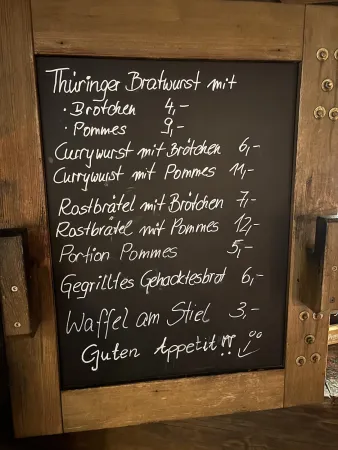 Thüringer Bratwurst mit
· Brötchen 4,-
· Pommes 9,-
Currywurst mit Brötchen 6,-
Currywurst mit Pommes 11,-
Rostbrätel mit Brötchen 7,-
Rostbrätel mit Pommes 12,-
Portion Pommes 5,-
Gegrilltes Gehacktesbrot 6,-
Waffel am Stiel 3,-
Guten Appetit!!!